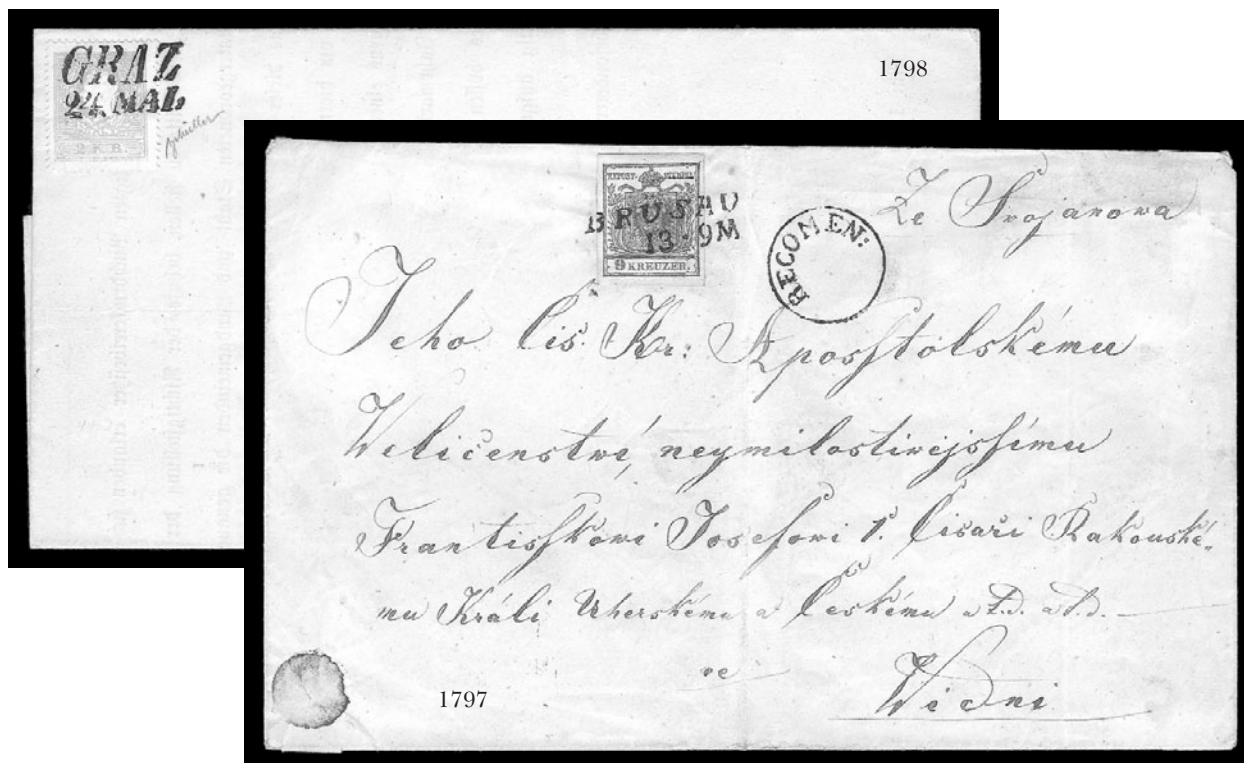 GRAZ
24. MAI.
2 K R.
1798
BRÜSAU
13. 9M
9 KREUZER.
RECOMEN:
Ze Swojanowa
Jeho Cis. Kr: Aposstolskému
Weličenstwí, neymilostiwějssímu
Frantisskowi Josefowi 1. Císaři Rakouské-
mu Králi Uherskému a Českému a t.d. a t.d.
we
Wídni
1797